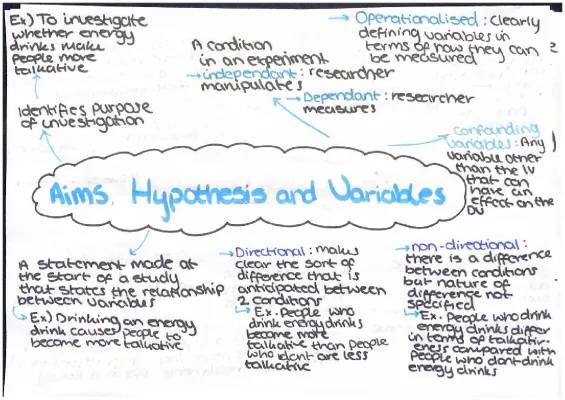 Ex) To investigate
whether energy
drinks make
people more
talkative
Identifies purpose
of investigation
A condition
in an experiment
→independant: researcher
manipulates
→Dependant: researcher
measures
→Operationalised: clearly
defining variables in
terms of how they can
be measured
confounding
variables: Any
variable other
than the IV
that can
have an
effect on the
DV
Aims, Hypothesis and Variables
A statement made at
the start of a study
that states the relationship
between variables
Ex) Drinking an energy
drink causes people to
become more talkative
→Directional: makes
clear the sort of
difference that is
anticipated between
2 conditions
Ex. People who
drink energy drinks
become more
talkative than people
who dont are less
talkative
→non-directional:
there is a difference
between conditions
but nature of
difference not
specified
Ex. People who drink
energy drinks differ
in terms of talkativ-
eness compared with
people who dont drink
energy drinks